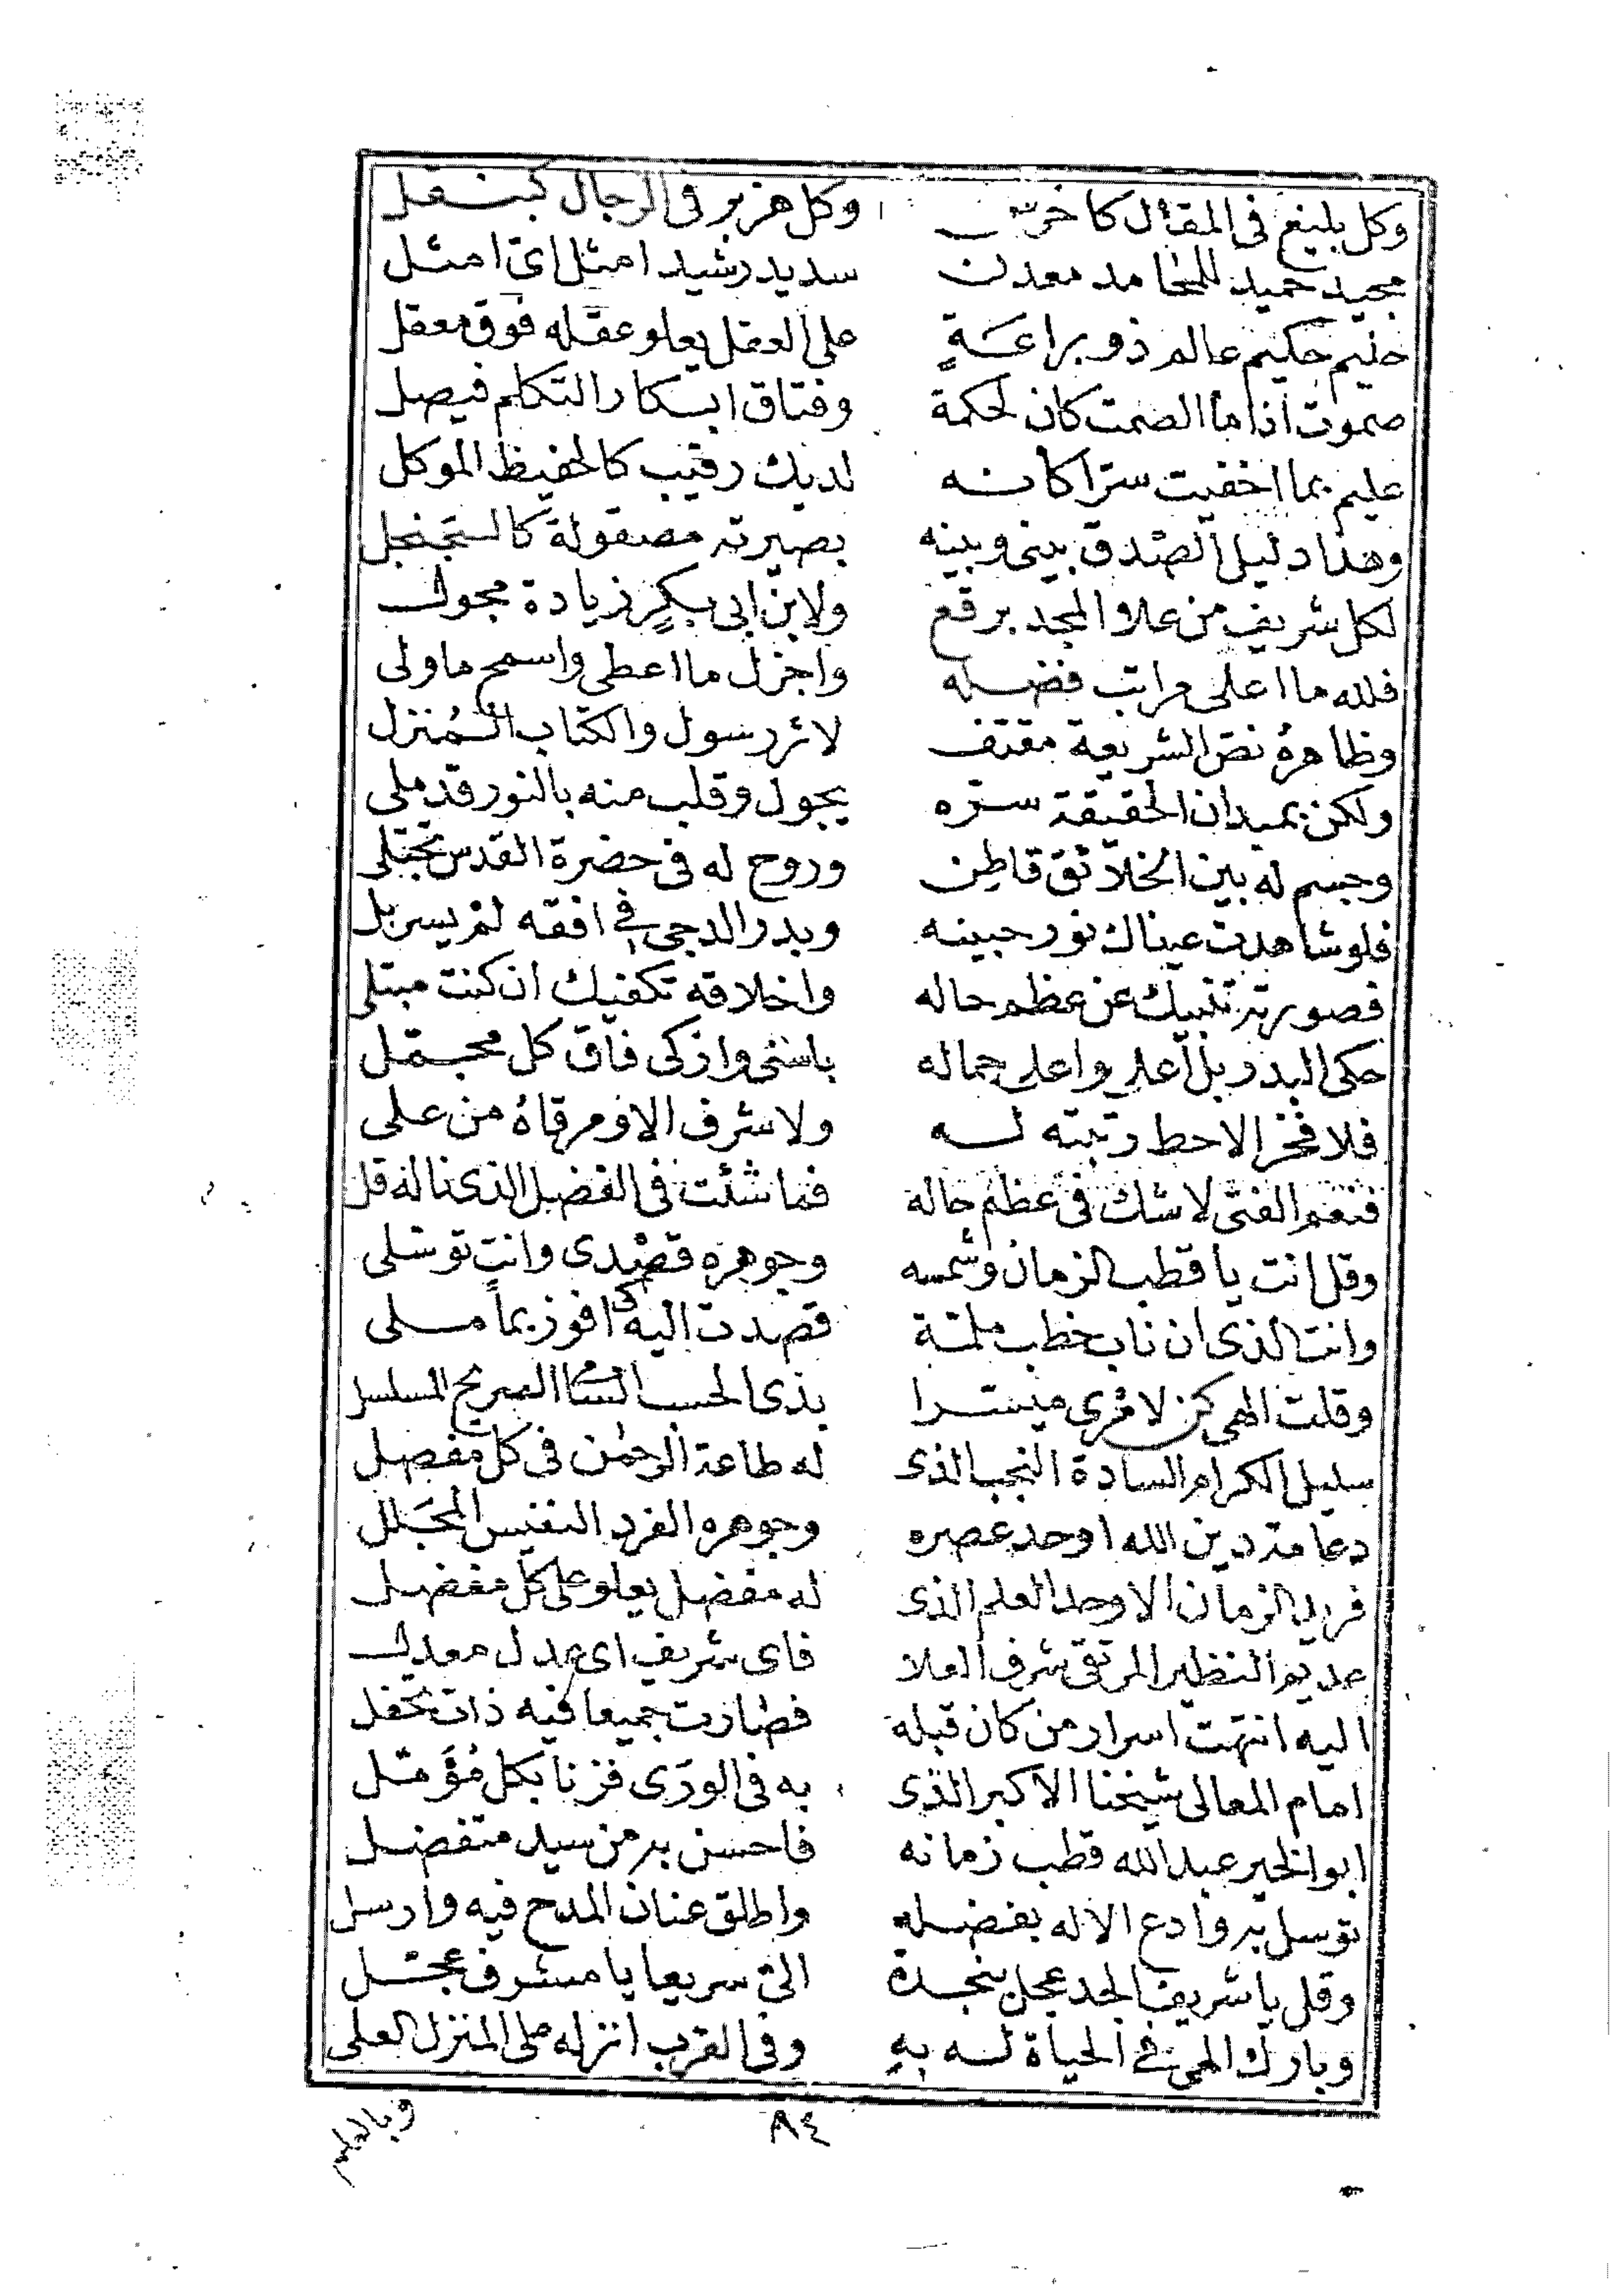 وكل بليغ في المقال كاخرس وكل هزبر في الرجال كتنفل
مجيد حميد للمحامد معدن سديد رشيد امثل اى امثل
حليم حكيم عالم ذو براعةٍ على العقل يعلو عقله فوق معقل
صموت اذا ما الصمت كان لحكمة وفتاق ابكار التكلم فيصل
عليم بما اخفيت سرّا كانه لديك رقيب كالحفيظ الموكل
وهذا دليل الصّدق بينى وبينه بصيرته مصقولة كالسّجنجل
لكل شريف من علاو المجد برقع ولابن ابى بكرٍ زيادة مجول
فلله ما اعلى مراتب فضله واجزل ما اعطى واسمح ما ولى
وظاهرهُ نصّ الشريعة مقتف لاثر رسول والكتاب المُنزل
ولكن بميدان الحقيقة سرّه يجول وقلب منه بالنور قد ملى
وجسم له بين الخلائق قاطن وروح له فى حضرة القدس تجتلى
فلو شاهدت عيناك نور جبينه وبدر الدجى في افقه لم يسربل
فصورته تنبيك عن عظم حاله واخلاقه تكفيك ان كنت مبتلى
حكى البدر بل اعلى واعلى جماله باسنى وازكى فاق كل مجمّل
فلا فخر الاحط رتبته له ولا شرف الاومرقاهُ من على
فنعم الفتى لا شك فى عظم حاله فما شئت فى الفضل الذى ناله قل
وقل انت يا قطب الزمان وشمسه وجوهره قصدى وانت توسلى
وانت الذى ان ناب خطب ملمّة قصدت اليه كى افوز بمأملى
وقلت الهى كن لامرى ميسرا بذى الحسب السامى الصريح المسلسل
سليل الكرام السادة النجب الذى له طاعة الرحمٰن فى كل مفصل
دعامة دين الله اوحد عصره وجوهره الفرد النفيس المجَلل
فريد الزمان الاوحد العلم الذى له مفضل يعلو على كل مفضل
عديم النظير المرتقى شرف العلا فاى شريف اى عدل معدل
اليه انتهت اسرار من كان قبله فصارت جميعا فيه ذات تحفل
امام المعالى شيخنا الاكبر الذى به فى الورى فزنا بكل مُؤَمّل
ابو الخير عبد الله قطب زمانه فاحسن به من سيد متفضل
توسل به وادع الاله بفضله واطلق عنان المدح فيه وارسل
وقل يا شريف الجد عجل بنجدة الىّ سريعا يا مشرف عجّل
وبارك الهى فى الحياة له بهِ وفى القرب انزله على المنزل العلى
وبالعلم
٨٤